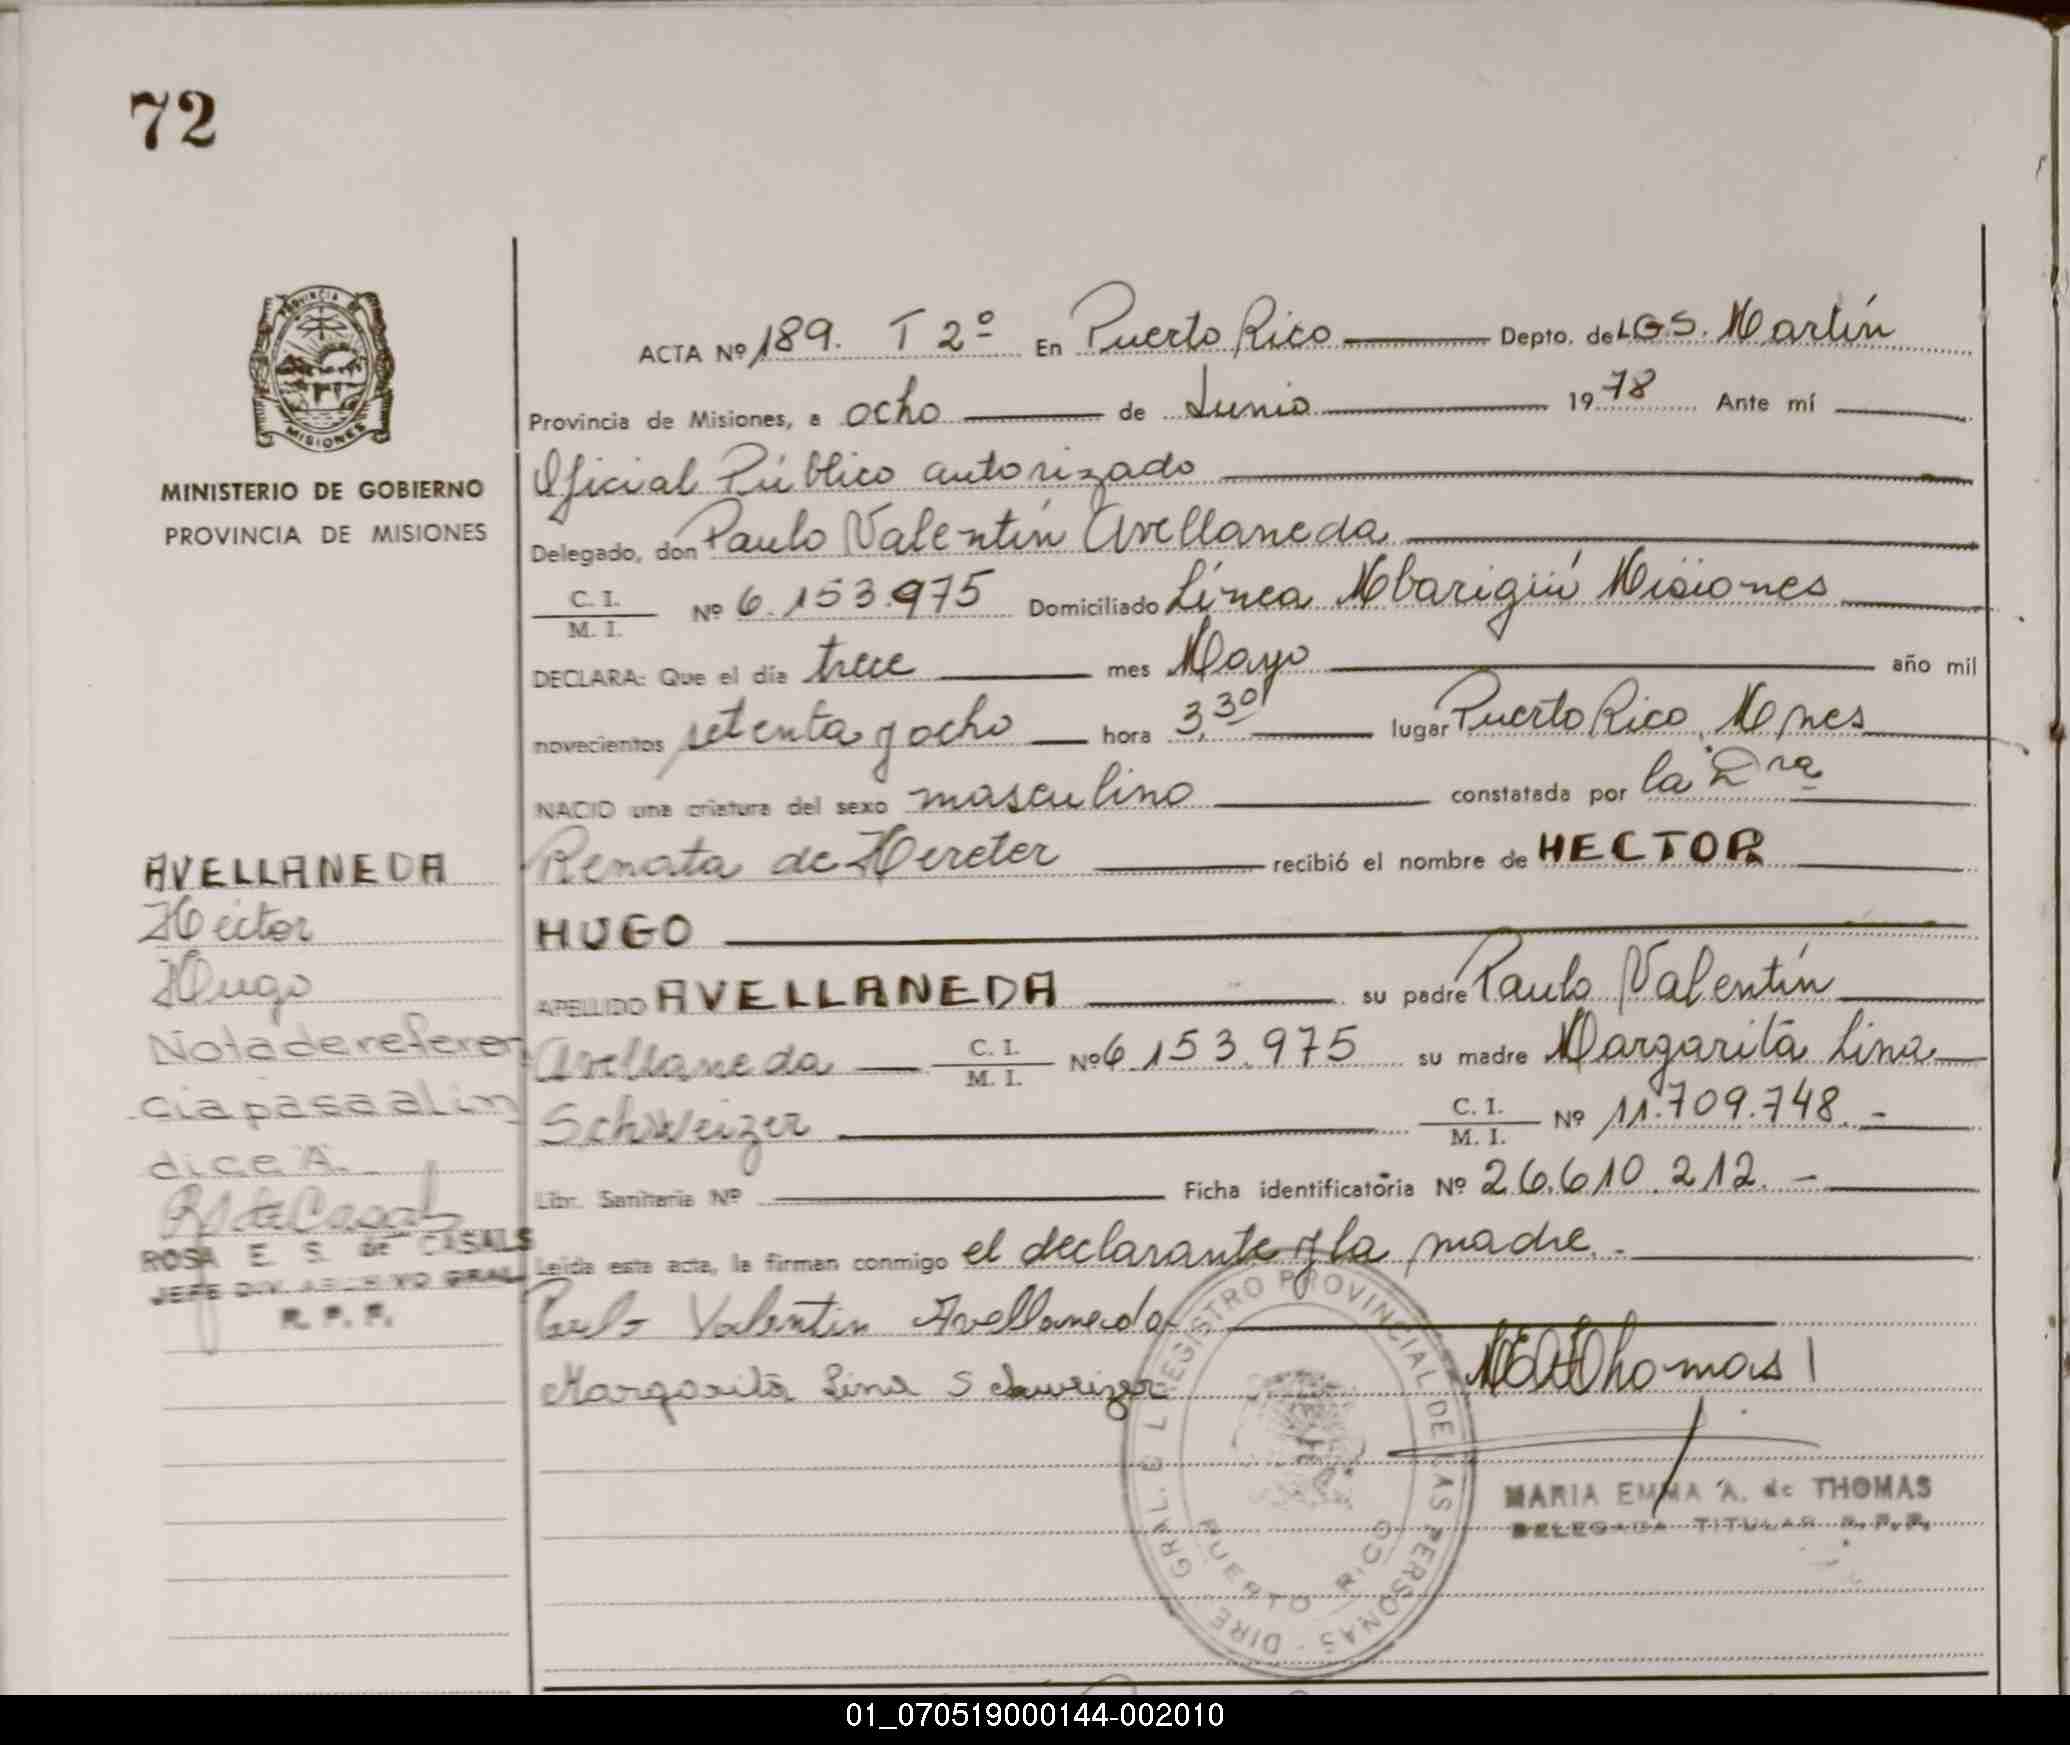 72
PROVINCIA DE
MISIONES
MINISTERIO DE GOBIERNO
PROVINCIA DE MISIONES
ACTA Nº 189. T 2º En Puerto Rico Depto. de L.G.S. Martín
Provincia de Misiones, a ocho de Junio 1978 Ante mí
Oficial Público autorizado
Delegado, don Paulo Valentín Avellaneda
C. I.
M. I. Nº 6.153.975 Domiciliado Línea Mbarigüí Misiones
DECLARA: Que el día trece mes Mayo año mil
novecientos setenta y ocho hora 3,30 lugar Puerto Rico, Mnes
NACIO una criatura del sexo masculino constatada por la Dra
Renata de Hereter recibió el nombre de HECTOR
HUGO
APELLIDO AVELLANEDA su padre Paulo Valentín
Avellaneda C. I. M. I. Nº 6.153.975 su madre Margarita Lina
Schweizer C. I. M. I. Nº 11.709.748.-
Libr. Sanitaria Nº Ficha identificatoria Nº 26.610.212.-
Leída esta acta, la firman conmigo el declarante y la madre.-
Paulo Valentin Avellaneda
Margarita Lina Schweizer
MEA Thomas
MARIA EMMA A. de THOMAS
DELEGADA TITULAR R. P. P.
REGISTRO PROVINCIAL DE LAS PERSONAS - DIRE GRAL. E L
PUERTO RICO
AVELLANEDA
Héctor
Hugo
Nota de referen
cia pasa al in
dice A.-
RS de Casals
ROSA E. S. de CASALS
JEFE DIV. ARCHIVO GRAL
R. P. P.
01_070519000144-002010